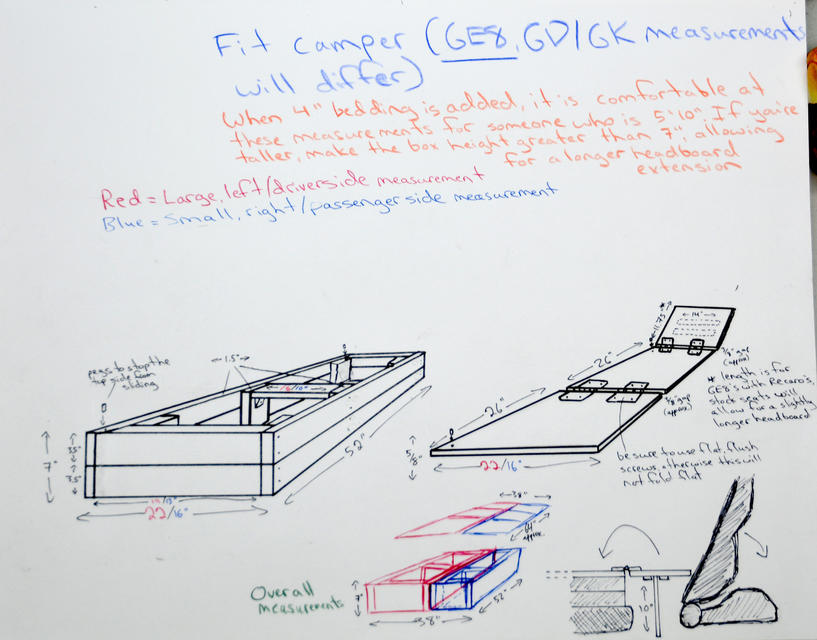 Fit camper (GE8, GD/GK measurements
will differ)
When 4" bedding is added, it is comfortable at
these measurements for someone who is 5'10". If you're
taller, make the box height greater than 7", allowing
for a longer headboard
extension
Red = Large, left/driverside measurement
Blue = Small, right/passenger side measurement
pegs to stop the
top side from
sliding
1.5"
7"
3.5"
3.5"
52"
22/16"
14"
11.75"
26"
26"
3/8" gap
(approx)
3/8" gap
(approx)
5/8"
22/16"
* length is for
GE8's with Recaro's,
stock seats will
allow for a slightly
longer headboard
be sure to use flat, flush
screws, otherwise this will
not fold flat
38"
64"
approx
Overall
measurements
7"
52"
38"
10"